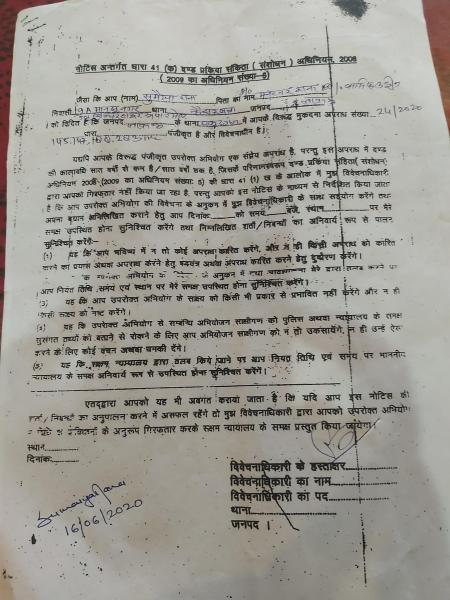 नोटिस अन्तर्गत धारा 41 (क) दण्ड प्रक्रिया संहिता ( संशोधन ) अधिनियम, 2008
( 2009 का अधिनियम संख्या-5)
जैसा कि आप (नाम) सुमैया राना पिता का नाम
निवासी थाना जनपद
को विदित है कि जनपद के थाना में आपके विरूद्ध मुकदमा अपराध संख्या 24/2020
धारा 145, पंजीकृत है और विवेचनाधीन है।
यद्यपि आपके विरूद्ध पंजीकृत उपरोक्त अभियोग एक संज्ञेय अपराध है, परन्तु इस अपराध में दण्ड
की कालावधि सात वर्षो से कम है/सात वर्षो तक है, जिसके परिणामस्वरूप दण्ड प्रक्रिया संहिता( संशोधन)
अधिनियम 2008 (2009 का अधिनियम संख्या: 5) की धारा 41 (1) ख के आलोक में मुझ विवेचनाधिकारी
द्वारा आपको गिरफ्तार नहीं किया जा रहा है, परन्तु आपको इस नोटिस के माध्यम से निर्देशित किया जाता
है कि आप उपरोक्त अभियोग की विवेचना के अनुक्रम में मुझ विवेचनाधिकारी के साथ सहयोग करेंगे तथा
अपना बयान अभिलिखित कराने हेतु आप दिनांक को समय बजे, स्थान पर मेरे
समक्ष उपस्थित होना सुनिश्चित करेंगे तथा निम्नलिखित शर्तों/निबन्धों का अनिवार्य रूप से पालन
सुनिश्चित करेंगे:-
(1) यह कि आप भविष्य में न तो कोई अपराध कारित करेंगे, और न ही किसी अपराध को कारित
करने का प्रयास अथवा अपराध करने हेतु षडयंत्र अथवा अपराध कारित करने हेतु दुष्प्रेरण करेंगे।
अभियोग के अनुक्रम में तथा मेरे द्वारा तलब करने पर
आप नियत तिथि, समय एवं स्थान पर मेरे समक्ष उपस्थित होना सुनिश्चित करेंगे।
(3) यह कि आप उपरोक्त अभियोग के साक्ष्य को किसी भी प्रकार से प्रभावित नहीं करेंगे और न ही
किसी साक्ष्य को नष्ट करेंगे।
(4) यह कि उपरोक्त अभियोग से सम्बन्धित अभियोजन साक्षीगण को पुलिस अथवा न्यायालय के समक्ष
सुसंगत तथ्यों को बताने से रोकने के लिए आप अभियोजन साक्षीगण को न तो उकसायेंगे, न ही उन्हें ऐसा
करने के लिए कोई वचन अथवा धमकी देंगे।
(5) यह कि सक्षम न्यायालय द्वारा तलब किये जाने पर आप नियत तिथि एवं समय पर माननीय
न्यायालय के समक्ष अनिवार्य रूप से उपस्थित होना सुनिश्चित करेंगे।
एतदद्वारा आपको यह भी अवगत कराया जाता है कि यदि आप इस नोटिस की
शर्तों/निबन्धों का अनुपालन करने में असफल रहेंगे तो मुझ विवेचनाधिकारी द्वारा आपको उपरोक्त अभियोग
के अनुरूप गिरफ्तार करके सक्षम न्यायालय के समक्ष प्रस्तुत किया जायेगा।
स्थान
दिनांक:
विवेचनाधिकारी के हस्ताक्षर
विवेचनाधिकारी का नाम
विवेचनाधिकारी का पद
थाना
जनपद ।
Sumaiya Rana
16/06/2020